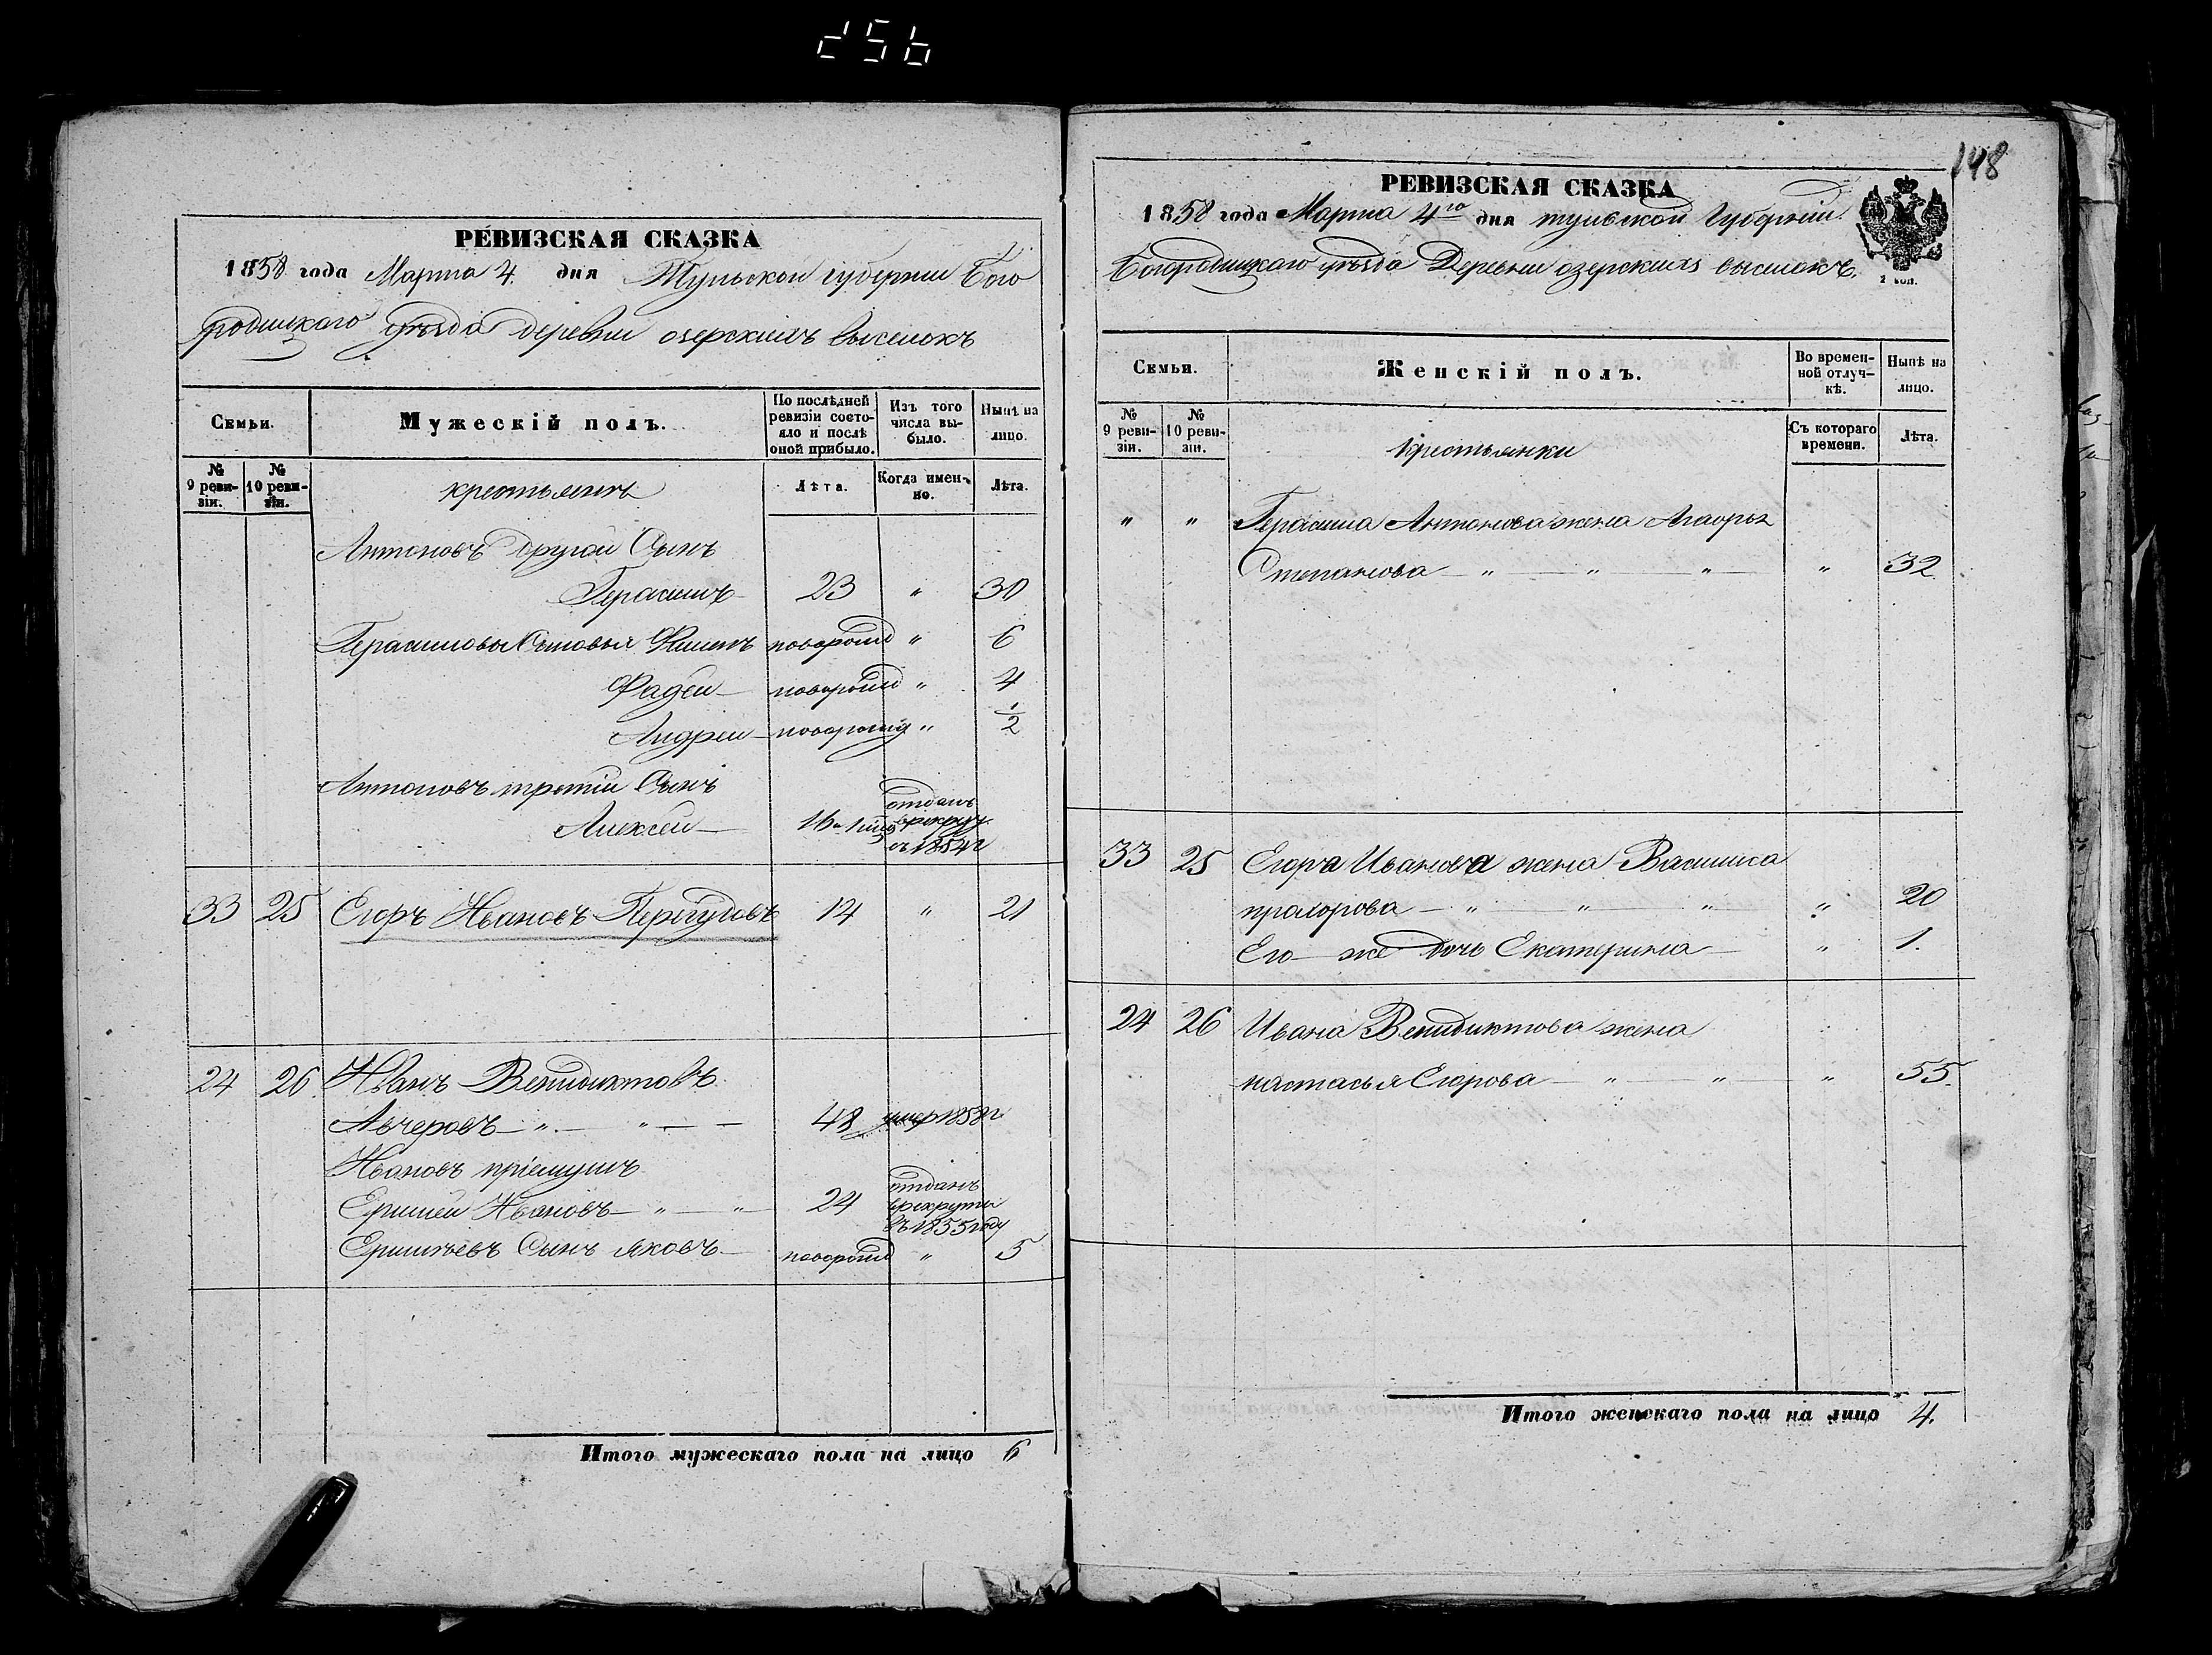 256
РЕВИЗСКАЯ СКАЗКА
1858 года Марта 4. дня Тульской губернии Бого
родицкого уѣзда деревни озерскихъ выселокъ
Семьи.
Мужескій полъ.
По послѣдней ревизіи состояло и послѣ оной прибыло.
Изъ того числа выбыло.
Нынѣ на лицо.
№ 9 ревизіи.
№ 10 ревизіи.
крестьянъ
Лѣта.
Когда именно.
Лѣта.
Антоновъ другой Сынъ
Герасимъ 23 " 30
Герасимовы Сыновья Филипъ новорожд " 6
Фадей новорожд " 4
Андрей новорожд " 1/2
Антоновъ третій Сынъ
Алексей 16 отданъ
врекру
въ 1854 г
33 25 Егоръ Ивановъ 14 " 21
24 26. Иванъ Венидиктовъ
Авчеровъ " " 48 умер 1858 г
Ивановъ пріемушъ
Ермилъ Ивановъ " " 24 отданъ
врекруты
въ 1855 году
сынъ яковъ новорожд " 5
Итого мужескаго пола на лицо 6
148
РЕВИЗСКАЯ СКАЗКА
1858 года Марта 4го дня тульской Губерніи
Богородицкаго уѣзда Деревни озерскихъ выселокъ.
2 коп.
Семьи.
Женскій полъ.
Во временной отлучкѣ.
Нынѣ на лицо.
№ 9 ревизіи.
№ 10 ревизіи.
крестьянки
Съ котораго времени.
Лѣта.
" " Герасима Антонова жена
Степанова " " " " 32
33 25 Егора Иванова жена Василиса
прохорова " " " " 20
Его же дочь Екатерина " 1.
24 26 Ивана Венидиктова жена
настасья Егорова " " " 55.
Итого женскаго пола на лицо 4.